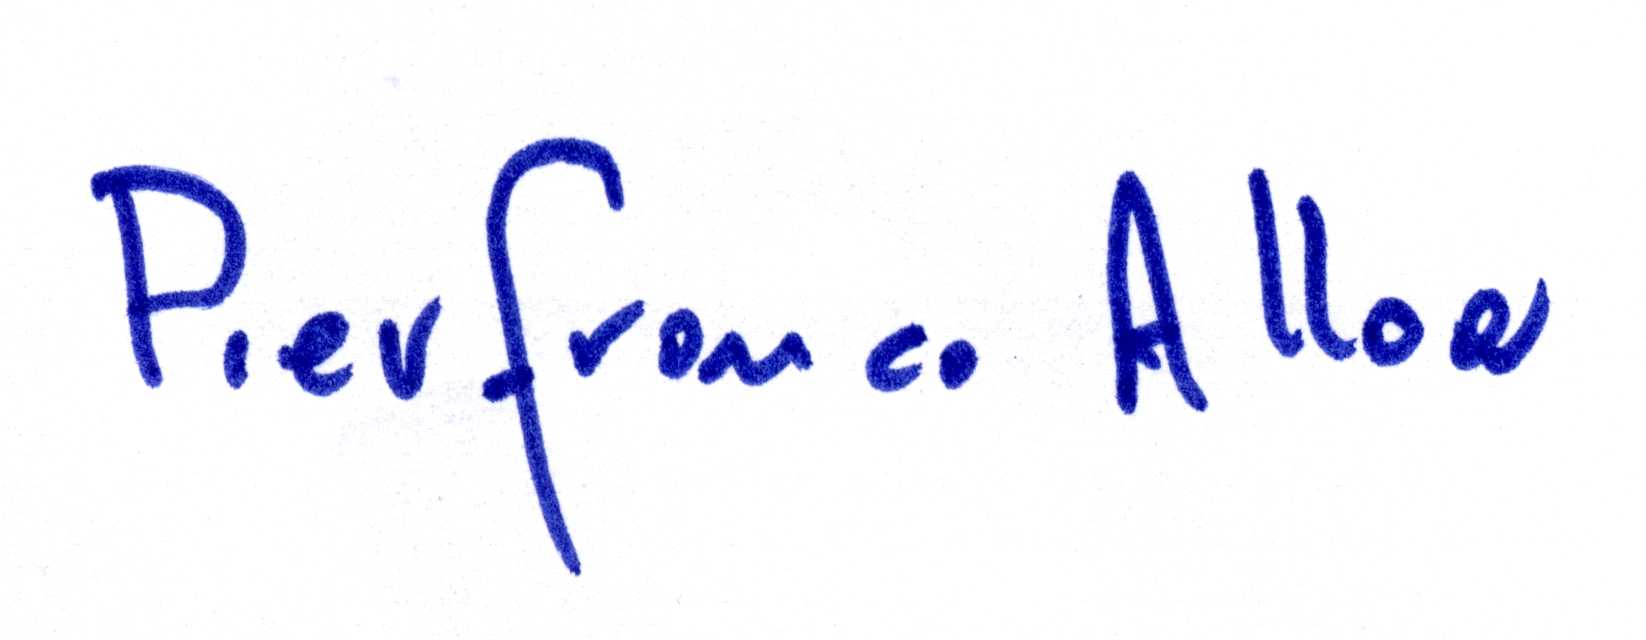 Pierfranco Alloa